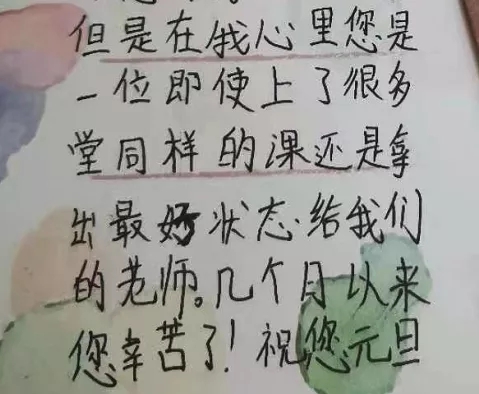 但是在我心里您是
一位即使上了很多
堂同样的课还是拿
出最好状态给我们
的老师。几个月以来
您幸苦了！祝您元旦